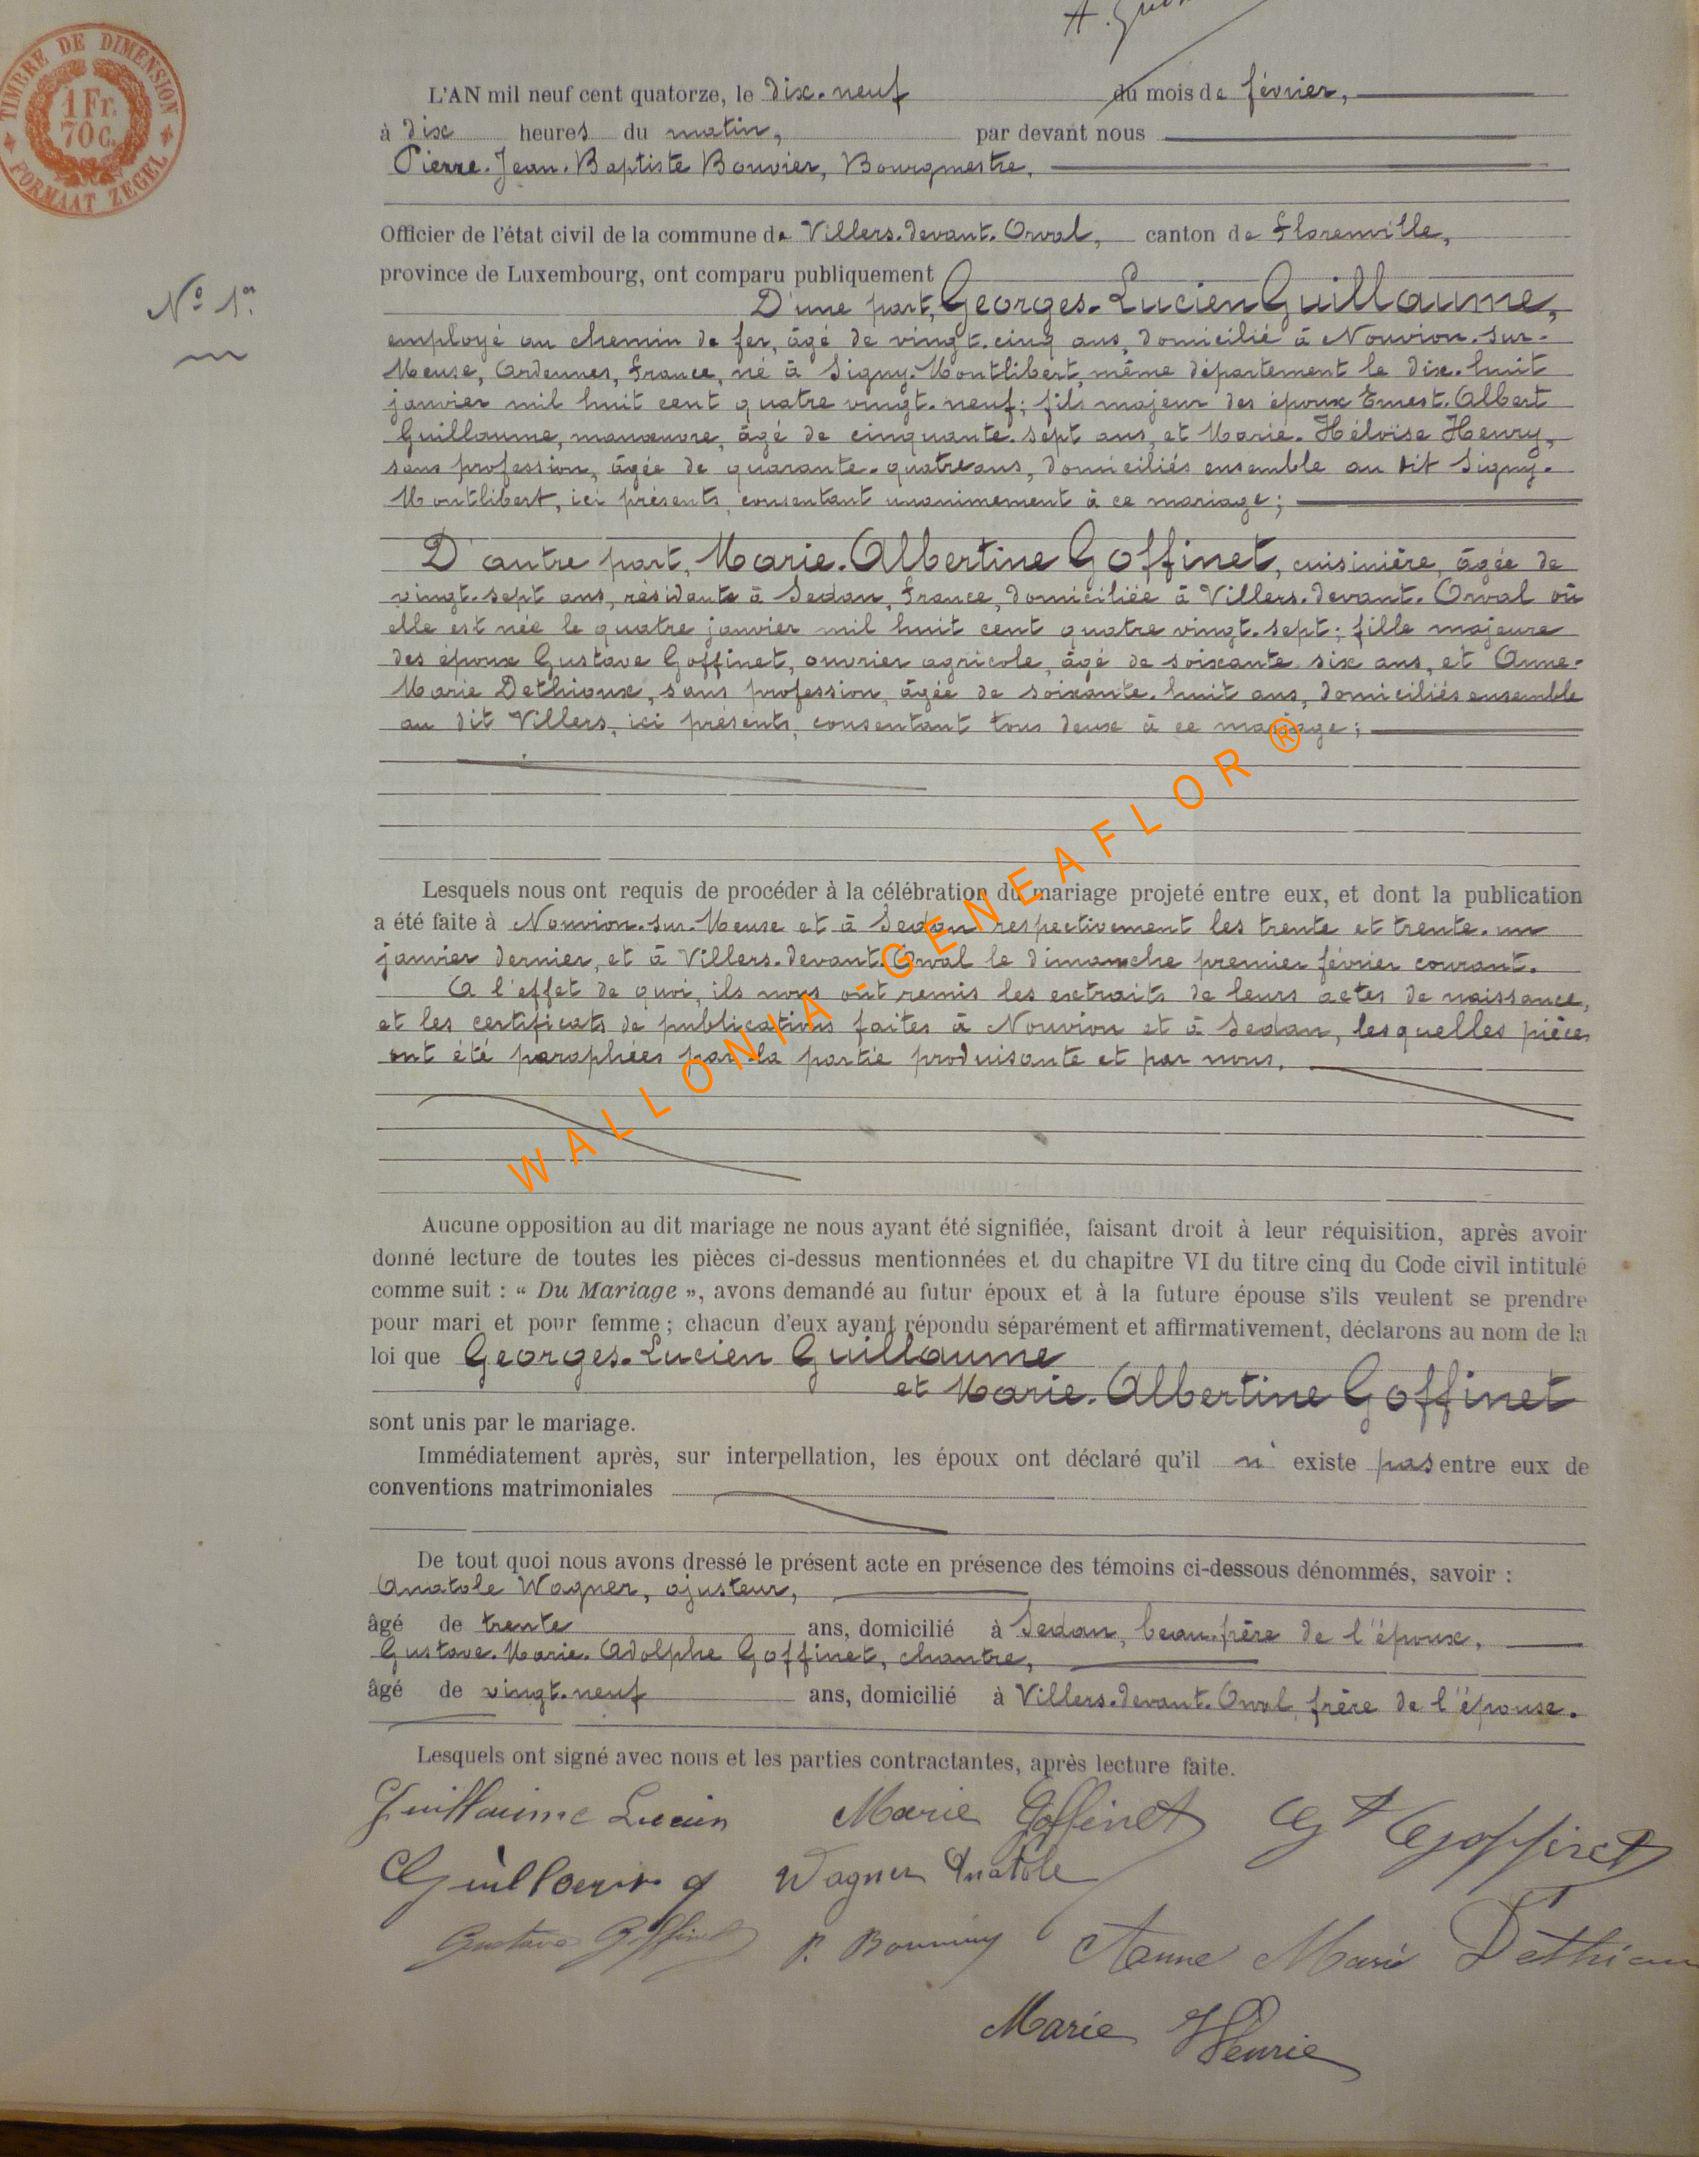 TIMBRE DE DIMENSION
1 Fr.
70 C.
FORMAAT ZEGEL
L'AN mil neuf cent quatorze, le dix-neuf du mois de février,
à dix heures du matin, par devant nous
Pierre-Jean-Baptiste Bouvier, Bourgmestre,
Officier de l'état civil de la commune de Villers-devant-Orval, canton de Florenville,
province de Luxembourg, ont comparu publiquement
N° 1er
D'une part, Georges-Lucien Guillaume,
employé au chemin de fer, âgé de vingt-cinq ans, domicilié à Nouvion-sur-
Meuse, Ardennes, France, né à Signy-Montlibert, même département le dix-huit
janvier mil huit cent quatre vingt-neuf; fils majeur des époux Ernest-Albert
Guillaume, manœuvre, âgé de cinquante-sept ans, et Marie-Héloïse Henry,
sans profession, âgée de quarante-quatre ans, domiciliés ensemble au dit Signy-
Montlibert, ici présents, consentant unanimement à ce mariage;
D'autre part, Marie-Albertine Goffinet, cuisinière, âgée de
vingt-sept ans, résidante à Sedan, France, domiciliée à Villers-devant-Orval où
elle est née le quatre janvier mil huit cent quatre vingt-sept; fille majeure
des époux Gustave Goffinet, ouvrier agricole, âgé de soixante six ans, et Anne-
Marie Dethioux, sans profession, âgée de soixante-huit ans, domiciliés ensemble
au dit Villers, ici présents, consentant tous deux à ce mariage;
Lesquels nous ont requis de procéder à la célébration du mariage projeté entre eux, et dont la publication
a été faite à Nouvion-sur-Meuse et à Sedan respectivement les trente et trente-un
janvier dernier, et à Villers-devant-Orval le dimanche premier février courant.
A l'effet de quoi, ils nous ont remis les extraits de leurs actes de naissance,
et les certificats de publications faites à Nouvion et à Sedan, lesquelles pièces
ont été paraphées par la partie produisante et par nous.
WALLONIA-GENEAFLOR ®
Aucune opposition au dit mariage ne nous ayant été signifiée, faisant droit à leur réquisition, après avoir
donné lecture de toutes les pièces ci-dessus mentionnées et du chapitre VI du titre cinq du Code civil intitulé
comme suit : « Du Mariage », avons demandé au futur époux et à la future épouse s'ils veulent se prendre
pour mari et pour femme ; chacun d'eux ayant répondu séparément et affirmativement, déclarons au nom de la
loi que Georges-Lucien Guillaume
et Marie-Albertine Goffinet
sont unis par le mariage.
Immédiatement après, sur interpellation, les époux ont déclaré qu'il n' existe pas entre eux de
conventions matrimoniales
De tout quoi nous avons dressé le présent acte en présence des témoins ci-dessous dénommés, savoir :
Anatole Wagner, ajusteur,
âgé de trente ans, domicilié à Sedan, beau-frère de l'époux,
Gustave-Marie-Adolphe Goffinet, chantre,
âgé de vingt-neuf ans, domicilié à Villers-devant-Orval, frère de l'épouse.
Lesquels ont signé avec nous et les parties contractantes, après lecture faite.
Guillaume Lucien Marie Goffinet Gt Goffinet
Wagner Anatole
Gustave Goffinet Anne Marie
Marie Henrie